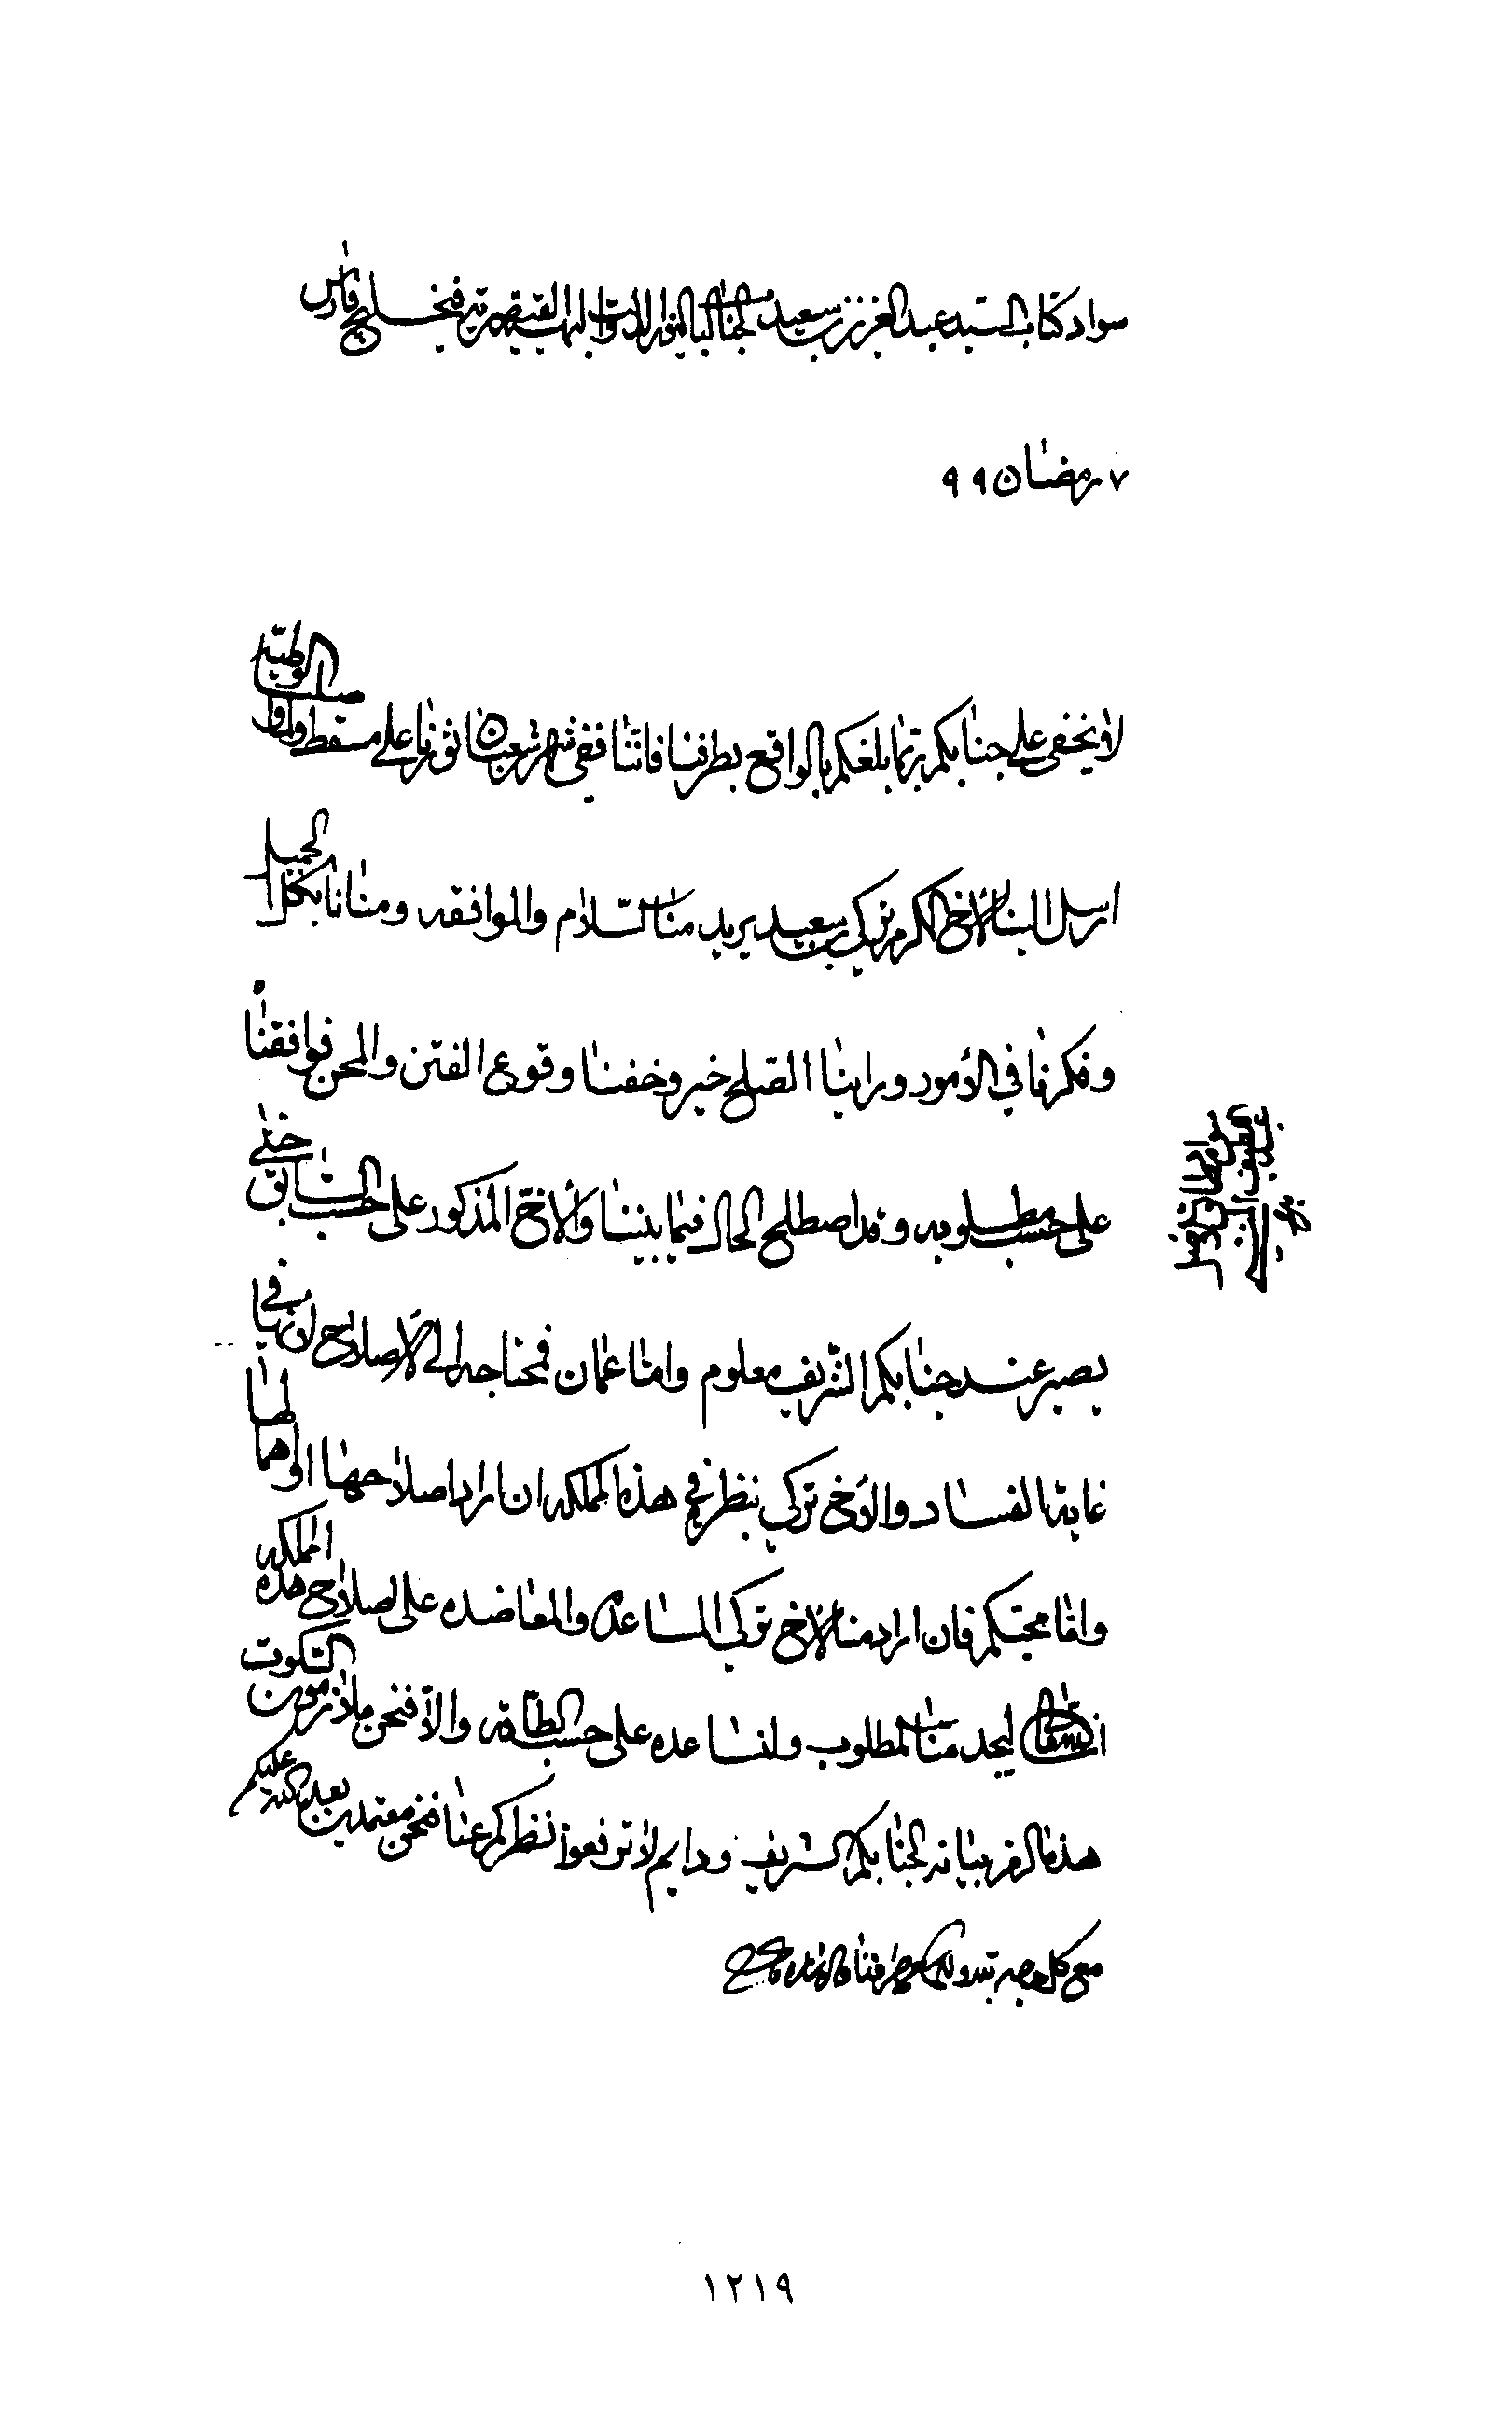 سواد كتاب السيد عبد العزيز بن سعيد لجناب الباليوز الدولة البهية القيصرية في خليج فارس
٧ رمضان ٩٩
لا يخفى على جنابكم ربما بلغكم بالواقع بطرفنا فاننا ففي شهر شعبان ثورنا على مسقط ولما وصلت الوطية
ارسل الينا الاخ المكرم تركي بن سعيد يريد منا السلام والموافقه ومنانا بكل الجميل
وفكرنا في الأمور وراينا الصلح خير وخفنا وقوع الفتن والمحن فوافقنا
على حسب مطلوبه وقد اصطلح الحال فيما بيننا والأخ المذكور على حسب السابق حتى
يصير عند جنابكم الشريف معلوم واما عمان فمحتاجه الى الأصلاح لان رعاياها في
غاية الفساد والأخ تركي ينظر في هذه المملكه ان اراد اصلاحها او اهمالها
واما محبتكم فان اراد منا الاخ تركي المساعده والمعاضده على اصلاح هذه المملكه
ان شاء الله تعالى ليجد منا المطلوب ولنساعده على حسب الطاقة والا فنحن ملازمون السكوت
هذا لزم بيانه لجنابكم الشريف ودايم لا ترفعوا نظركم عنا فنحن معتمدين بعد الله عليكم
مع كل وجه تبدو لكم من طرفنا
١٢١٩